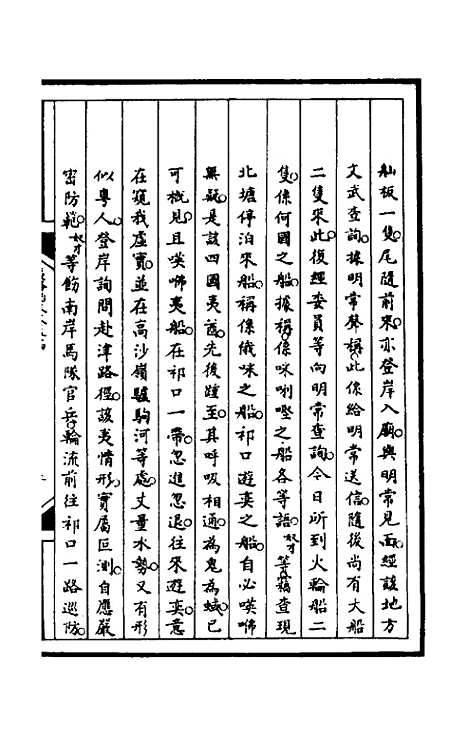 舢板一隻尾隨前來亦登岸入廟與明常見面經該地方
文武查詢據明常聲稱此係給明常送信隨後尚有大船
二隻來此復經委員等向明常查詢今日所到火輪船二
隻係何國之船據稱係咪唎𠸄之船各等語奴才等竊查現
北塘停泊來船稱係俄咪之船祁口遊奕之船自必𠸄咈
無疑是該四國夷酋先後踵至其呼吸相通為鬼為蜮已
可概見且𠸄咈夷船在祁口一帶忽進忽退往來遊奕意
在窺我虛實並在高沙嶺驢駒河等處丈量水勢又有形
似粵人登岸詢問赴津路徑該夷情形實屬叵測自應嚴
密防範奴才等飭南岸馬隊官兵輪流前往祁口一路巡防